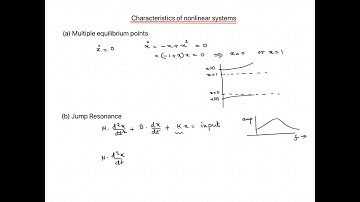 Characteristics of nonlinear systems
(a) Multiple equilibrium points
ẋ = 0 ẋ = -x + x² = 0
= (-1+x)x = 0 ⇒ x=0 or x=1
x(0)
x=1
x=0
x(0)
(b) Jump Resonance
M · d²x/dt² + B · dx/dt + Kx = input
amp
M · d²x/dt